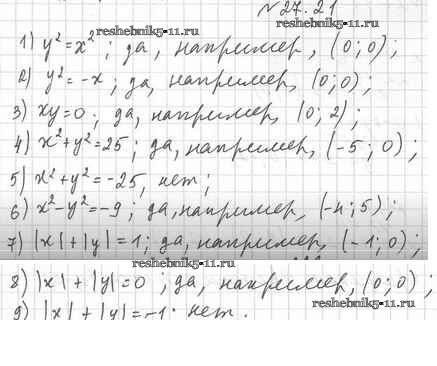 № 27.21
reshebnik5-11.ru reshebnik5-11.ru
1) y² = x²; да, например, (0; 0);
2) y² = -x; да, например, (0; 0);
3) xy = 0; да, например, (0; 2);
4) x² + y² = 25; да, например, (-5; 0);
5) x² + y² = -25, нет;
6) x² - y² = -9; да, например, (-4; 5);
7) |x| + |y| = 1; да, например, (-1; 0);
reshebnik5-11.ru
8) |x| + |y| = 0; да, например, (0; 0);
reshebnik5-11.ru
9) |x| + |y| = -1. нет.